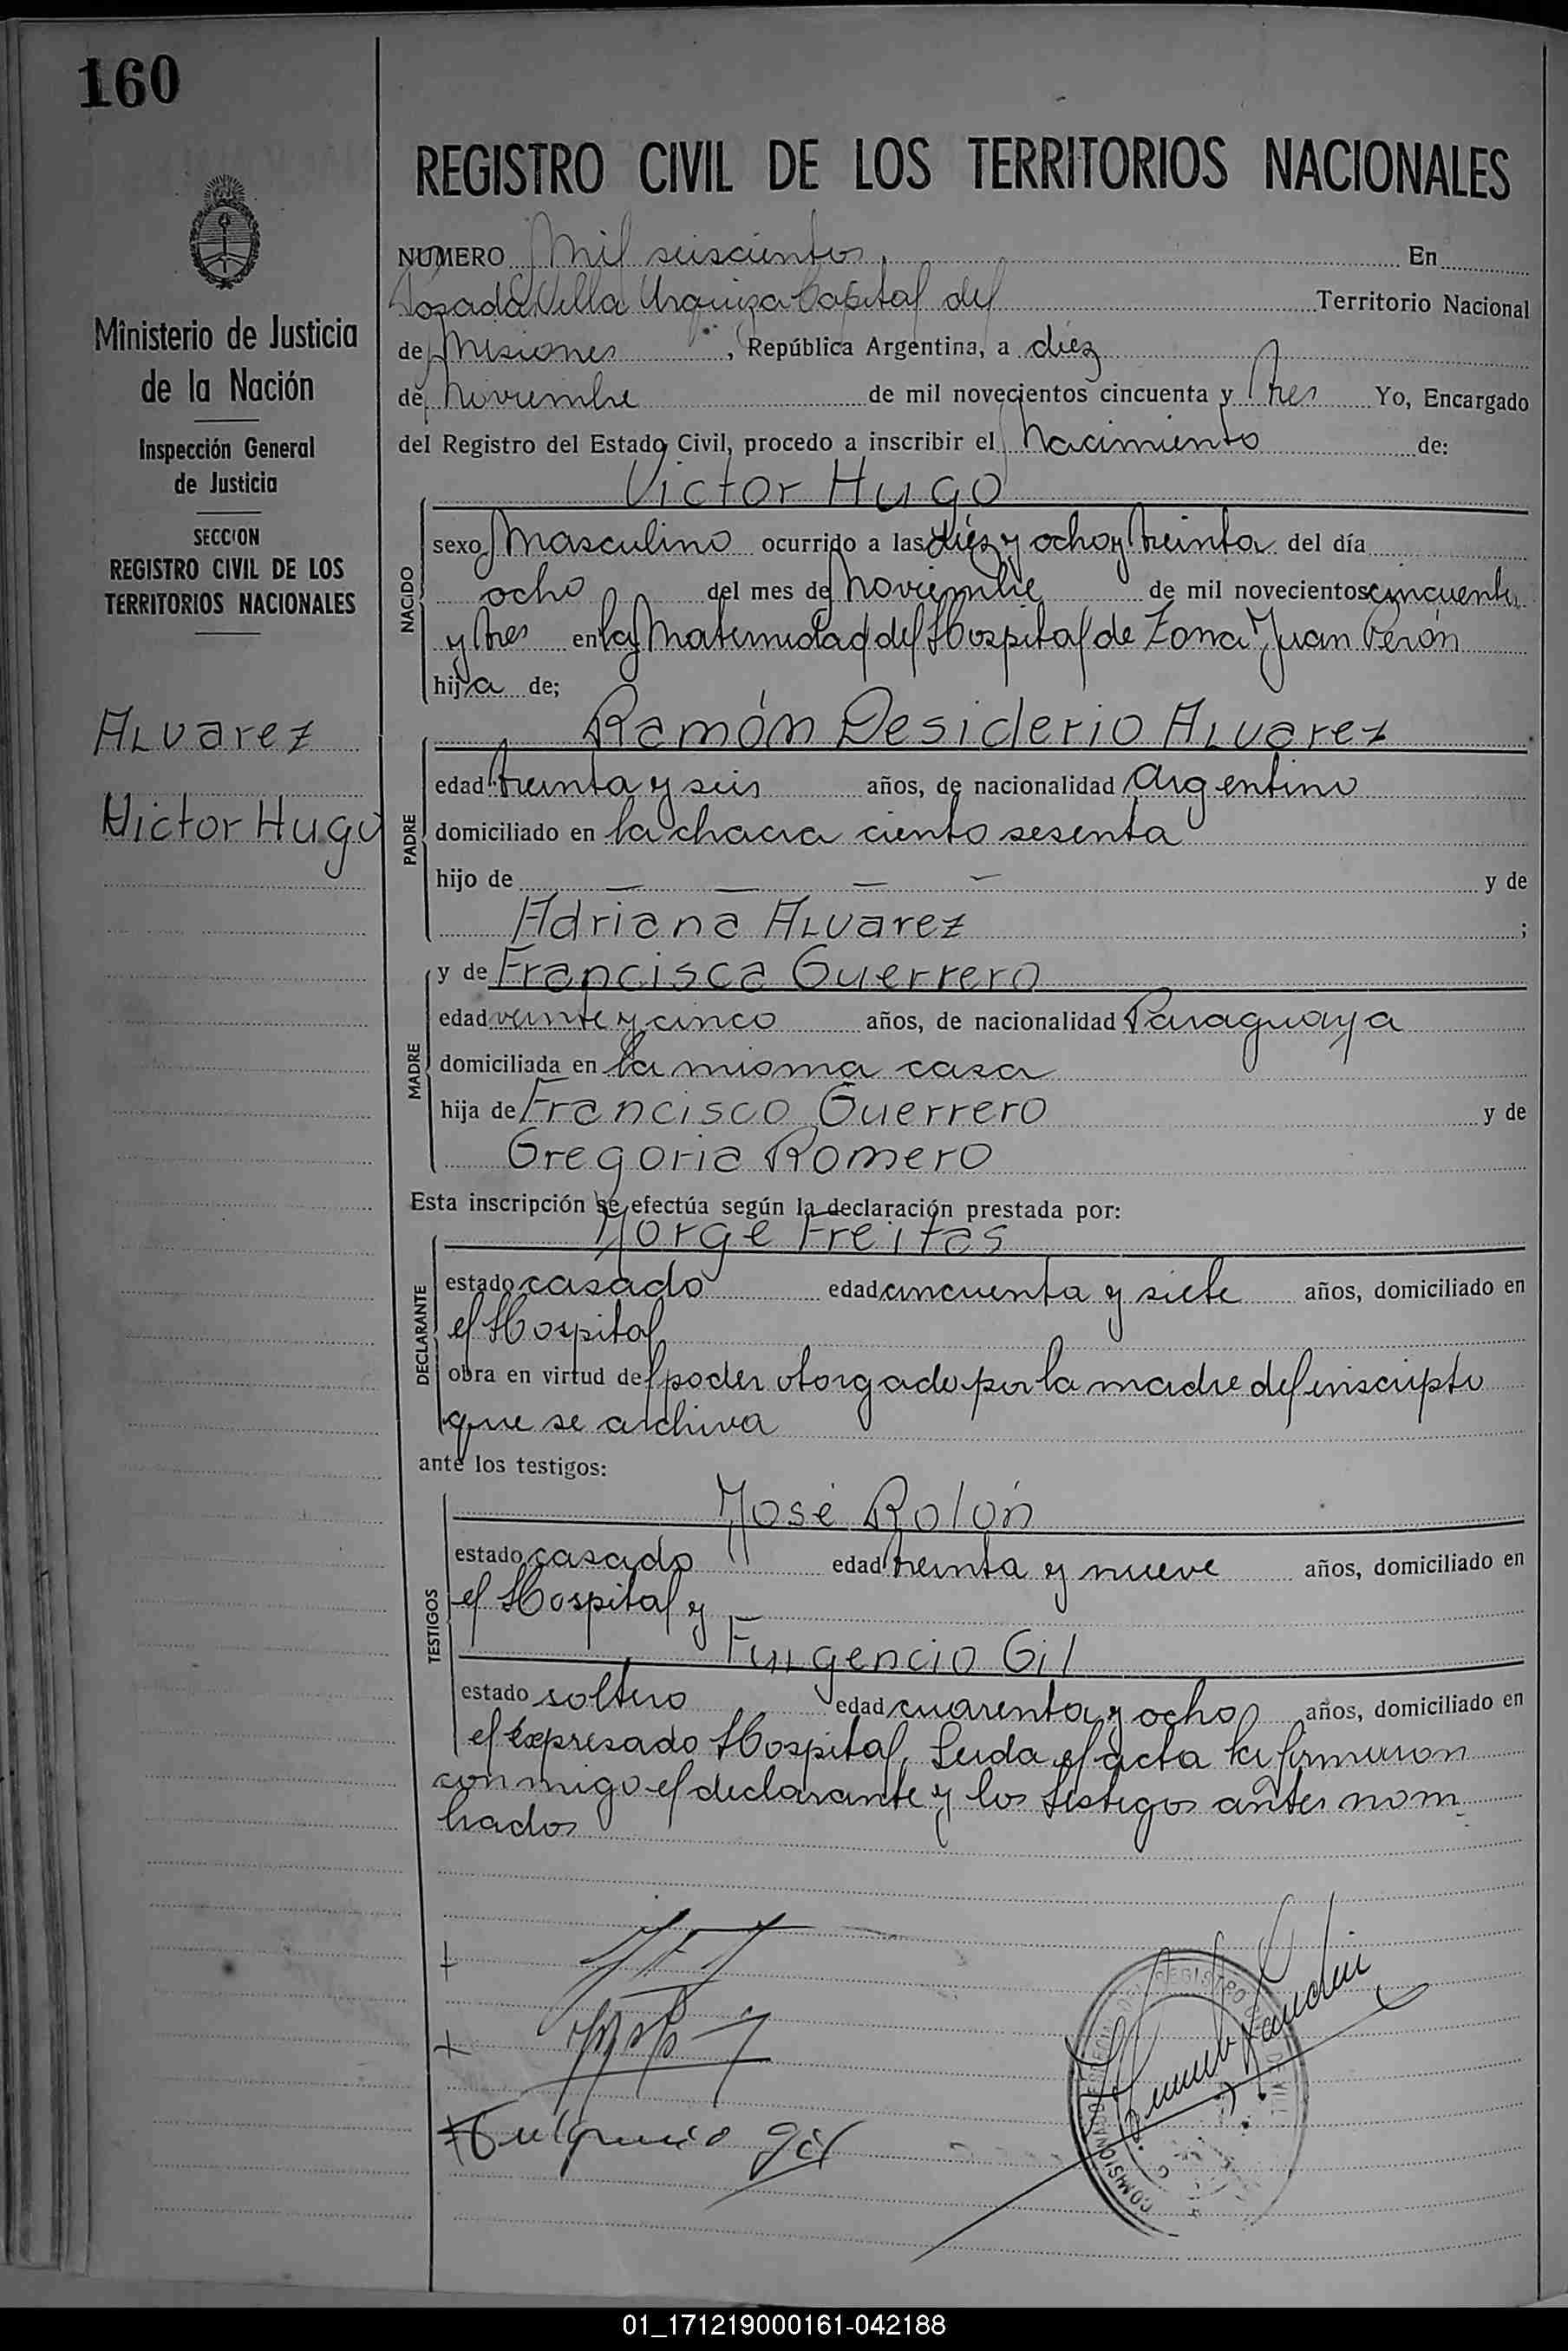 160
REGISTRO CIVIL DE LOS TERRITORIOS NACIONALES
NUMERO Mil seiscientos En
Posadas, Villa Urquiza Capital del Territorio Nacional
de Misiones, República Argentina, a diez
de Noviembre de mil novecientos cincuenta y tres Yo, Encargado
del Registro del Estado Civil, procedo a inscribir el Nacimiento de:
Victor Hugo
NACIDO
sexo Masculino ocurrido a las diez y ocho y treinta del día
ocho del mes de Noviembre de mil novecientos cincuenta
y tres en la Maternidad del Hospital de Zona Juan Perón
hijo de;
Ramón Desiderio Alvarez
PADRE
edad treinta y seis años, de nacionalidad Argentino
domiciliado en la chacra ciento sesenta
hijo de — — — — y de
Adriana Alvarez ;
MADRE
y de Francisca Guerrero
edad veinte y cinco años, de nacionalidad Paraguaya
domiciliada en la misma casa
hija de Francisco Guerrero y de
Gregoria Romero
Esta inscripción se efectúa según la declaración prestada por:
Jorge Freitas
DECLARANTE
estado casado edad cincuenta y siete años, domiciliado en
el Hospital
obra en virtud del poder otorgado por la madre del inscripto
que se archiva
ante los testigos:
José Rolón
TESTIGOS
estado casado edad treinta y nueve años, domiciliado en
el Hospital y
Fulgencio Gil
estado soltero edad cuarenta y ocho años, domiciliado en
el expresado Hospital. Leida el acta la firmaron
conmigo el declarante y los testigos antes nom
brados
Fulgencio Gil
Ministerio de Justicia
de la Nación
Inspección General
de Justicia
SECCION
REGISTRO CIVIL DE LOS
TERRITORIOS NACIONALES
Alvarez
Victor Hugo
01_171219000161-042188